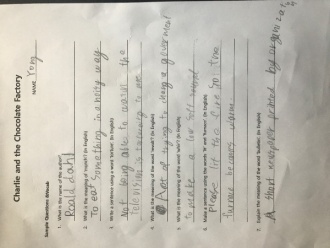 Charlie and the Chocolate Factory
NAME Yong
Sample Questions Workout:
1. What is the name of the author?
Roald dahl
2. What is the meaning of (in English)
To eat something in a noisy way
3. Write a sentence using a word (in English)
Not being able to watch the
television is to me
4. What is the meaning of the word (in English)
A act of trying to a government
5. What is the meaning of the word (in English)
to make a low sound
6. Make a sentence using the words "lit" and "furnace". (in English)
please lit the fire for the
furnace becomes warm
7. Explain the meaning of the word "bulletin" (in English)
A short newspaper printed by